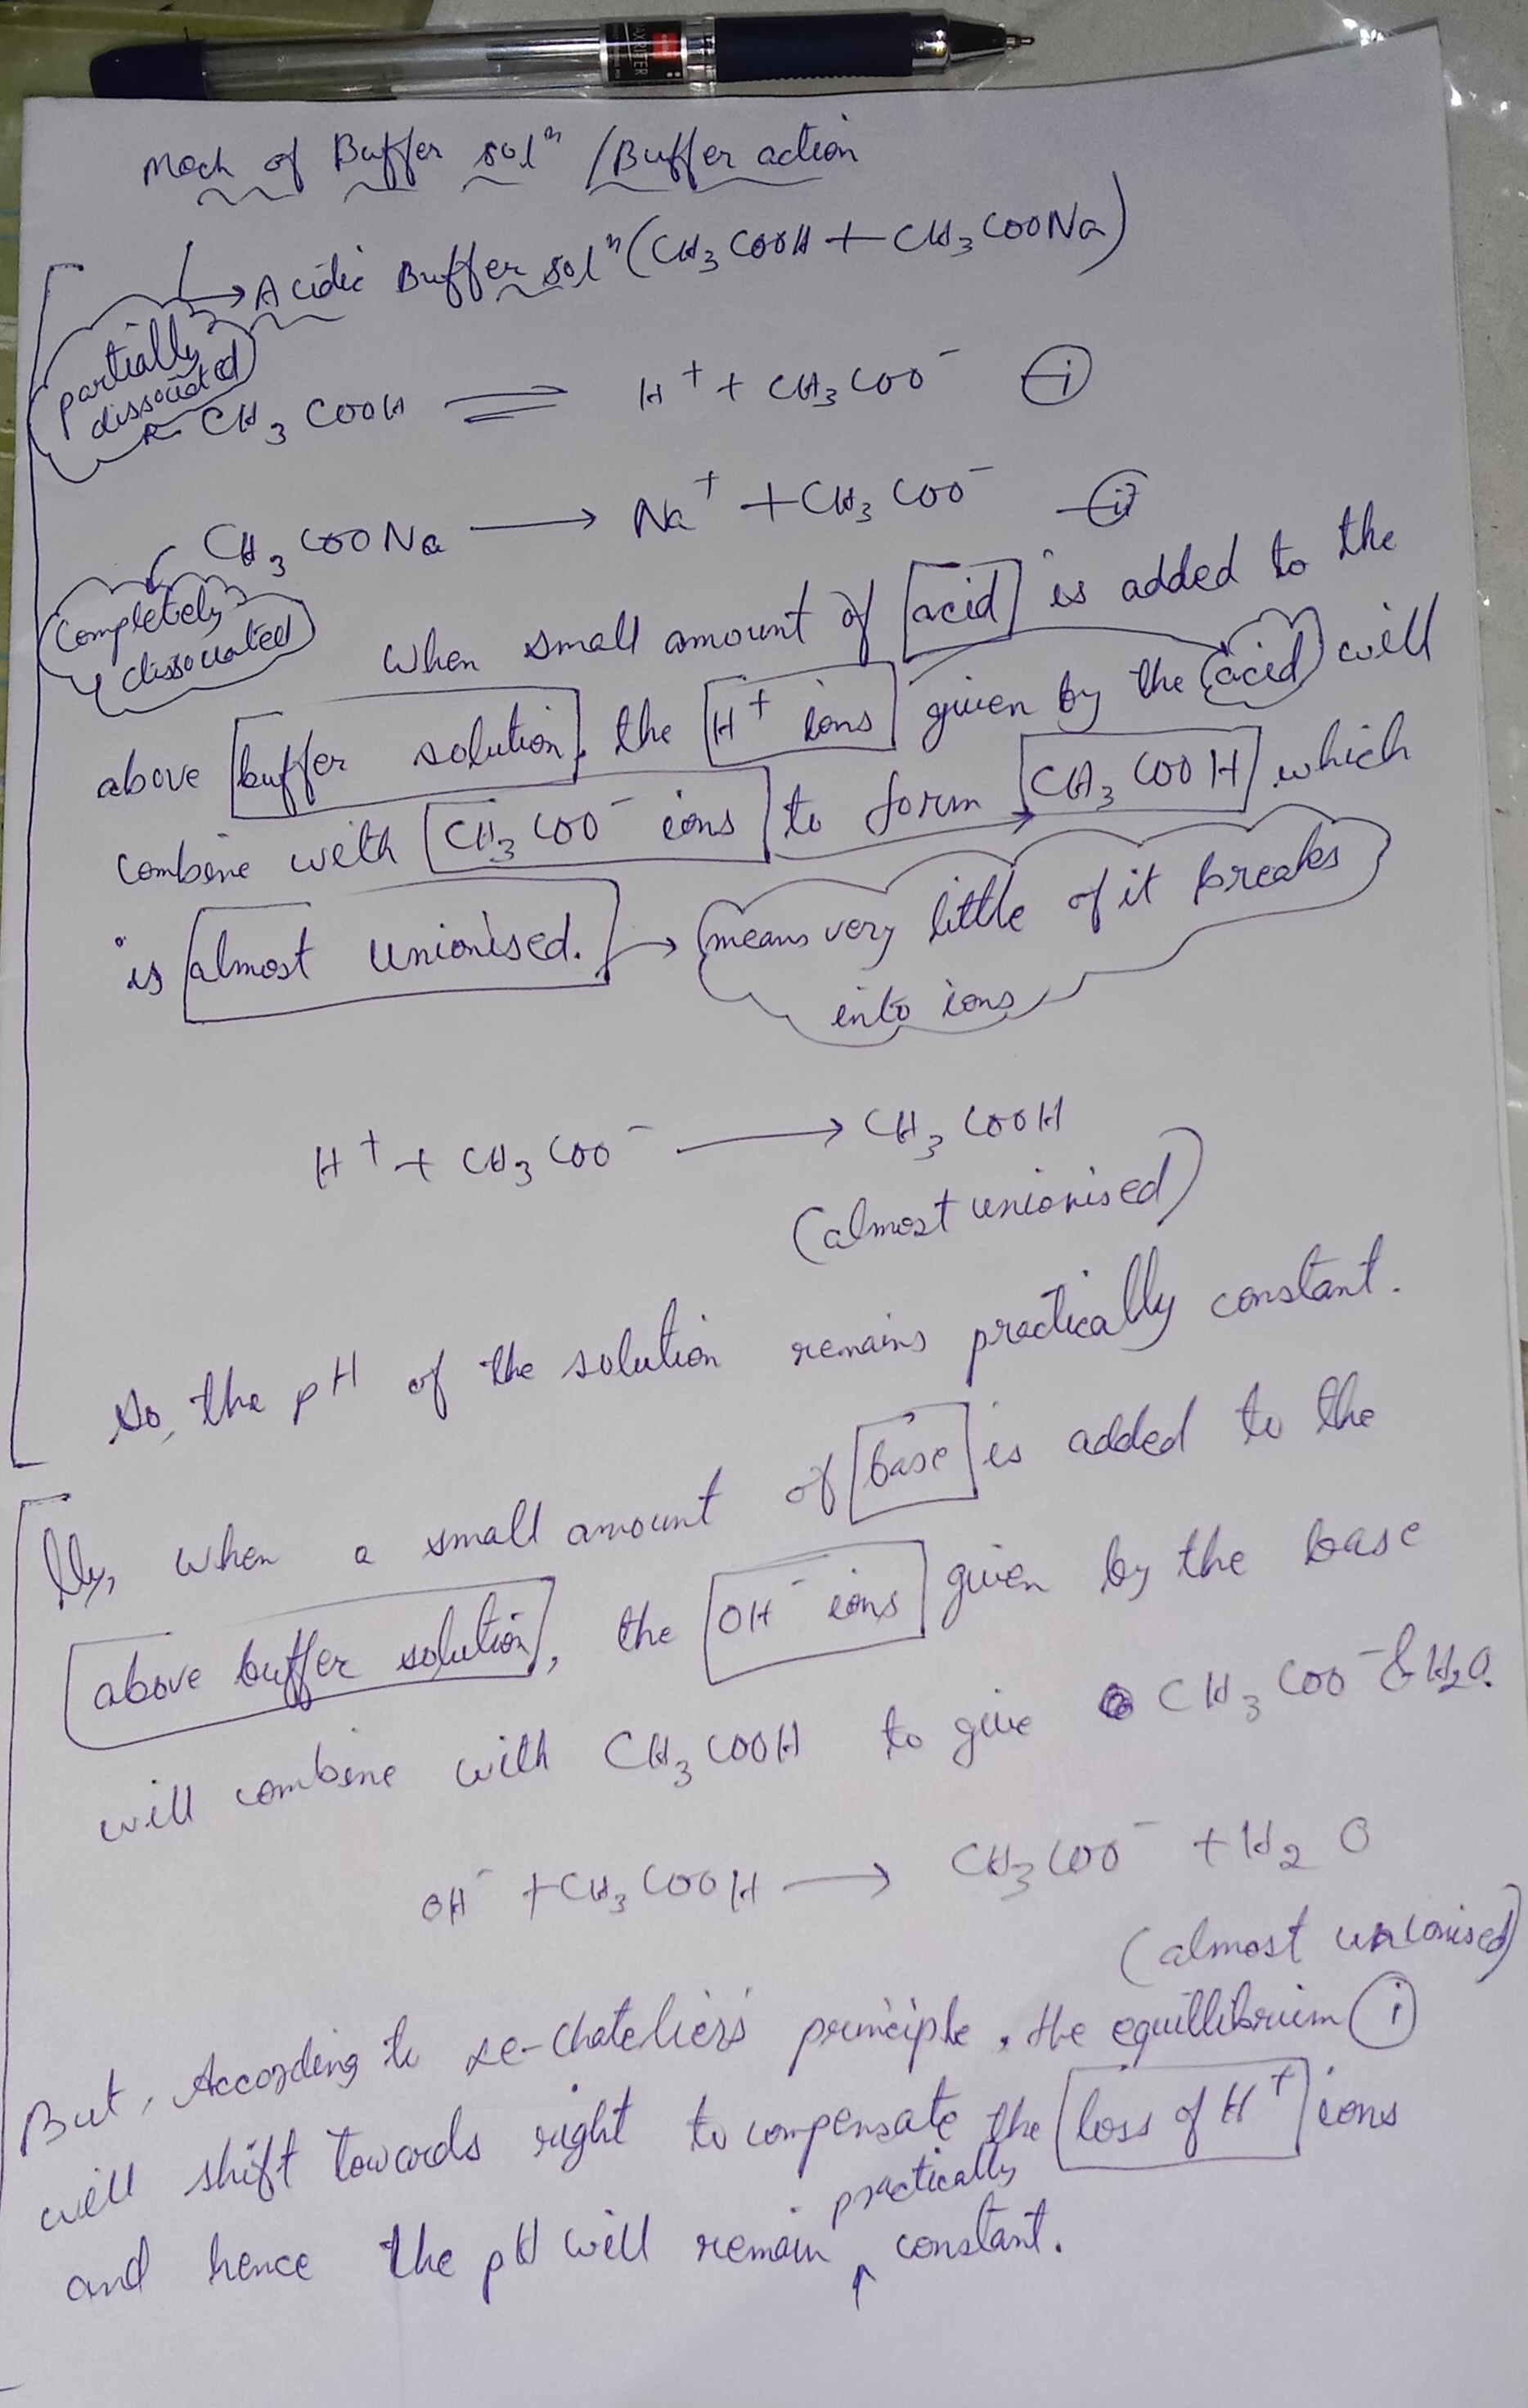 AXRITER
Mech of Buffer solⁿ / Buffer action
→ Acidic Buffer solⁿ (CH₃COOH + CH₃COONa)
partially
dissociated
CH₃COOH ⇌ H⁺ + CH₃COO⁻ —(i)
CH₃COONa → Na⁺ + CH₃COO⁻ —(ii)
Completely
dissociated
When small amount of acid is added to the
above buffer solution, the H⁺ ions given by the acid will
combine with CH₃COO⁻ ions to form CH₃COOH which
is almost unionised. → means very little of it breaks
into ions
H⁺ + CH₃COO⁻ → CH₃COOH
(almost unionised)
So, the pH of the solution remains practically constant.
lly, when a small amount of base is added to the
above buffer solution, the OH⁻ ions given by the base
will combine with CH₃COOH to give CH₃COO⁻ & H₂O.
OH⁻ + CH₃COOH → CH₃COO⁻ + H₂O
(almost unionised)
But, According to Le-Chatelier's principle, the equillibrium (i)
will shift towards right to compensate the loss of H⁺ ions
practically
and hence the pH will remain ^ constant.